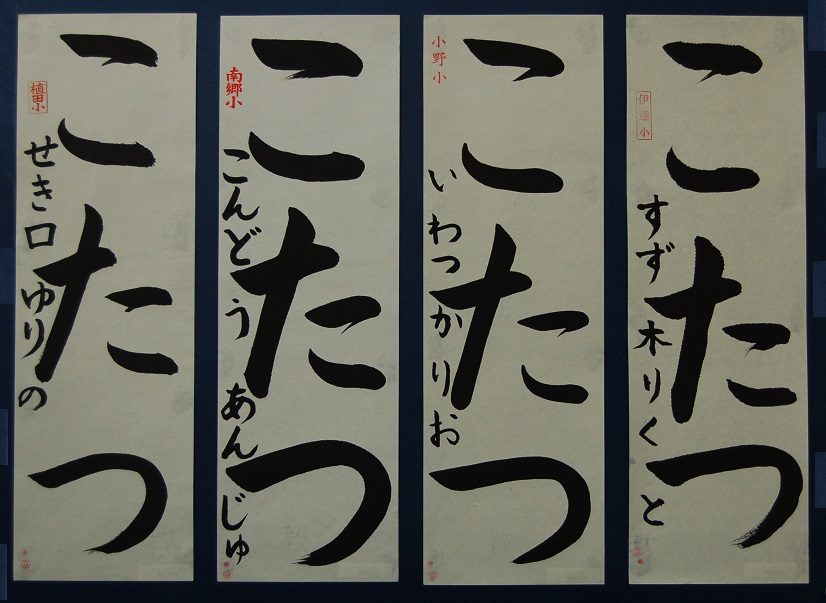 こたつ
伊達小
すず木りくと
こたつ
小野小
いわつかりお
こたつ
南郷小
こんどうあんじゅ
こたつ
植田小
せき口ゆりの